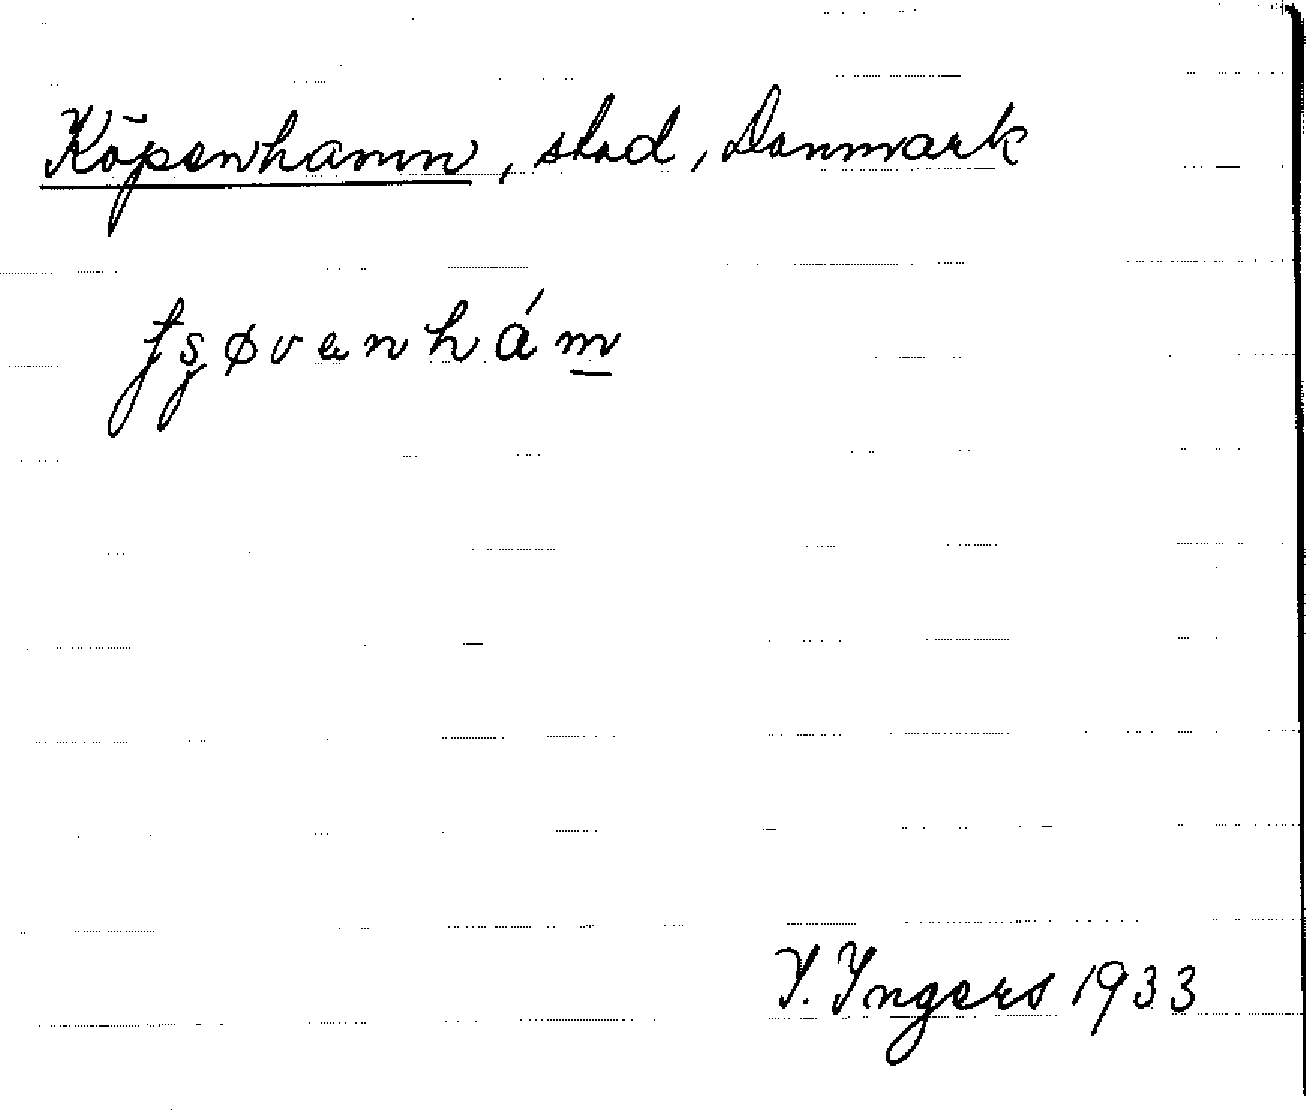 Köpenhamn, stad, Danmark
ɟʂøvenhám̲
I. Ingers 1933